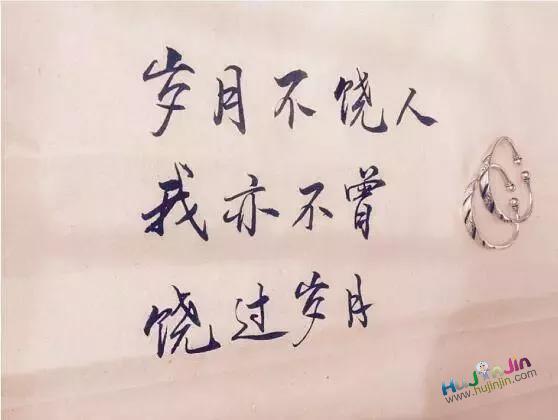 岁月不饶人
我亦不曾
饶过岁月
HuJinJin
www.hujinjin.com